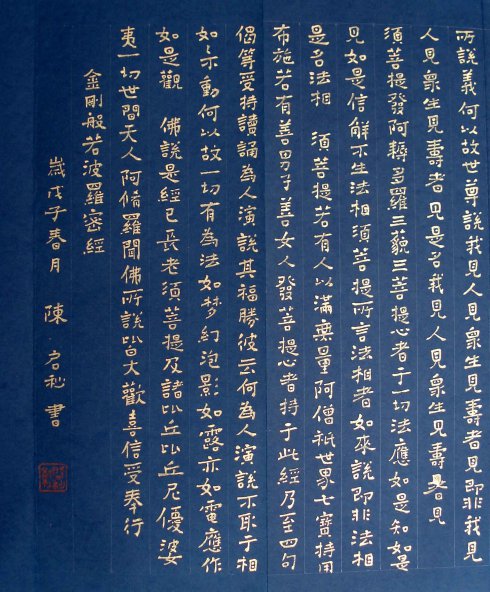 所說義何以故世尊說我見人見眾生見壽者見即非我見
人見眾生見壽者見是名我見人見眾生見壽者見
須菩提發阿耨多羅三藐三菩提心者于一切法應如是知如是
見如是信解不生法相須菩提所言法相者如來說即非法相
是名法相 須菩提若有人以滿無量阿僧祇世界七寶持用
布施若有善男子善女人發菩提心者持于此經乃至四句
偈等受持讀誦為人演說其福勝彼云何為人演說不取于相
如々不動何以故一切有為法如梦幻泡影如露亦如電應作
如是觀 佛說是經已長老須菩提及諸比丘比丘尼優婆
夷一切世間天人阿脩羅聞佛所說皆大歡喜信受奉行
金剛般若波羅蜜經
歲戊子春月 陳 書